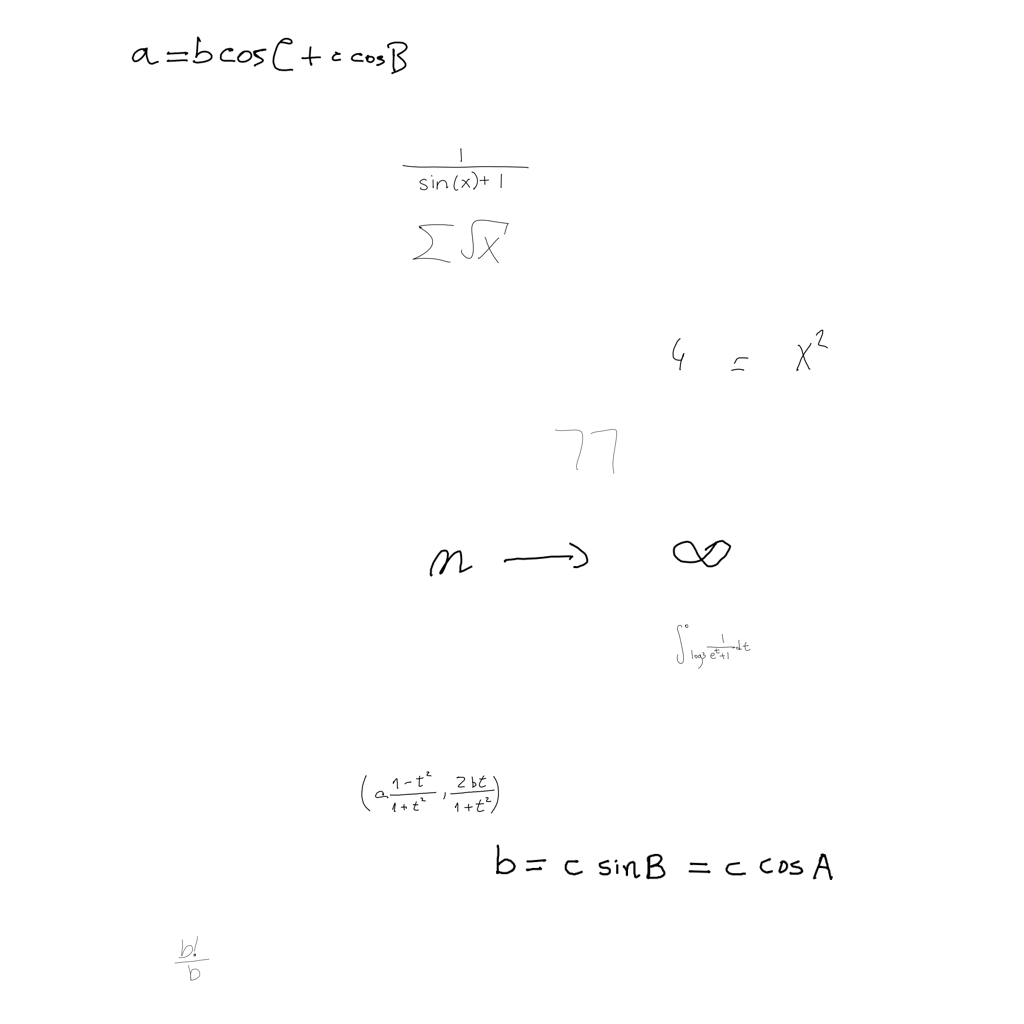 a = b cos C + c cos B
\frac{1}{sin(x)+1}
∑ √x
4 = x^2
77
n → ∞
\int_{log3}^{0} \frac{1}{e^t+1} dt
(a \frac{1-t^2}{1+t^2}, \frac{2bt}{1+t^2})
b = c sin B = c cos A
\frac{b!}{b}